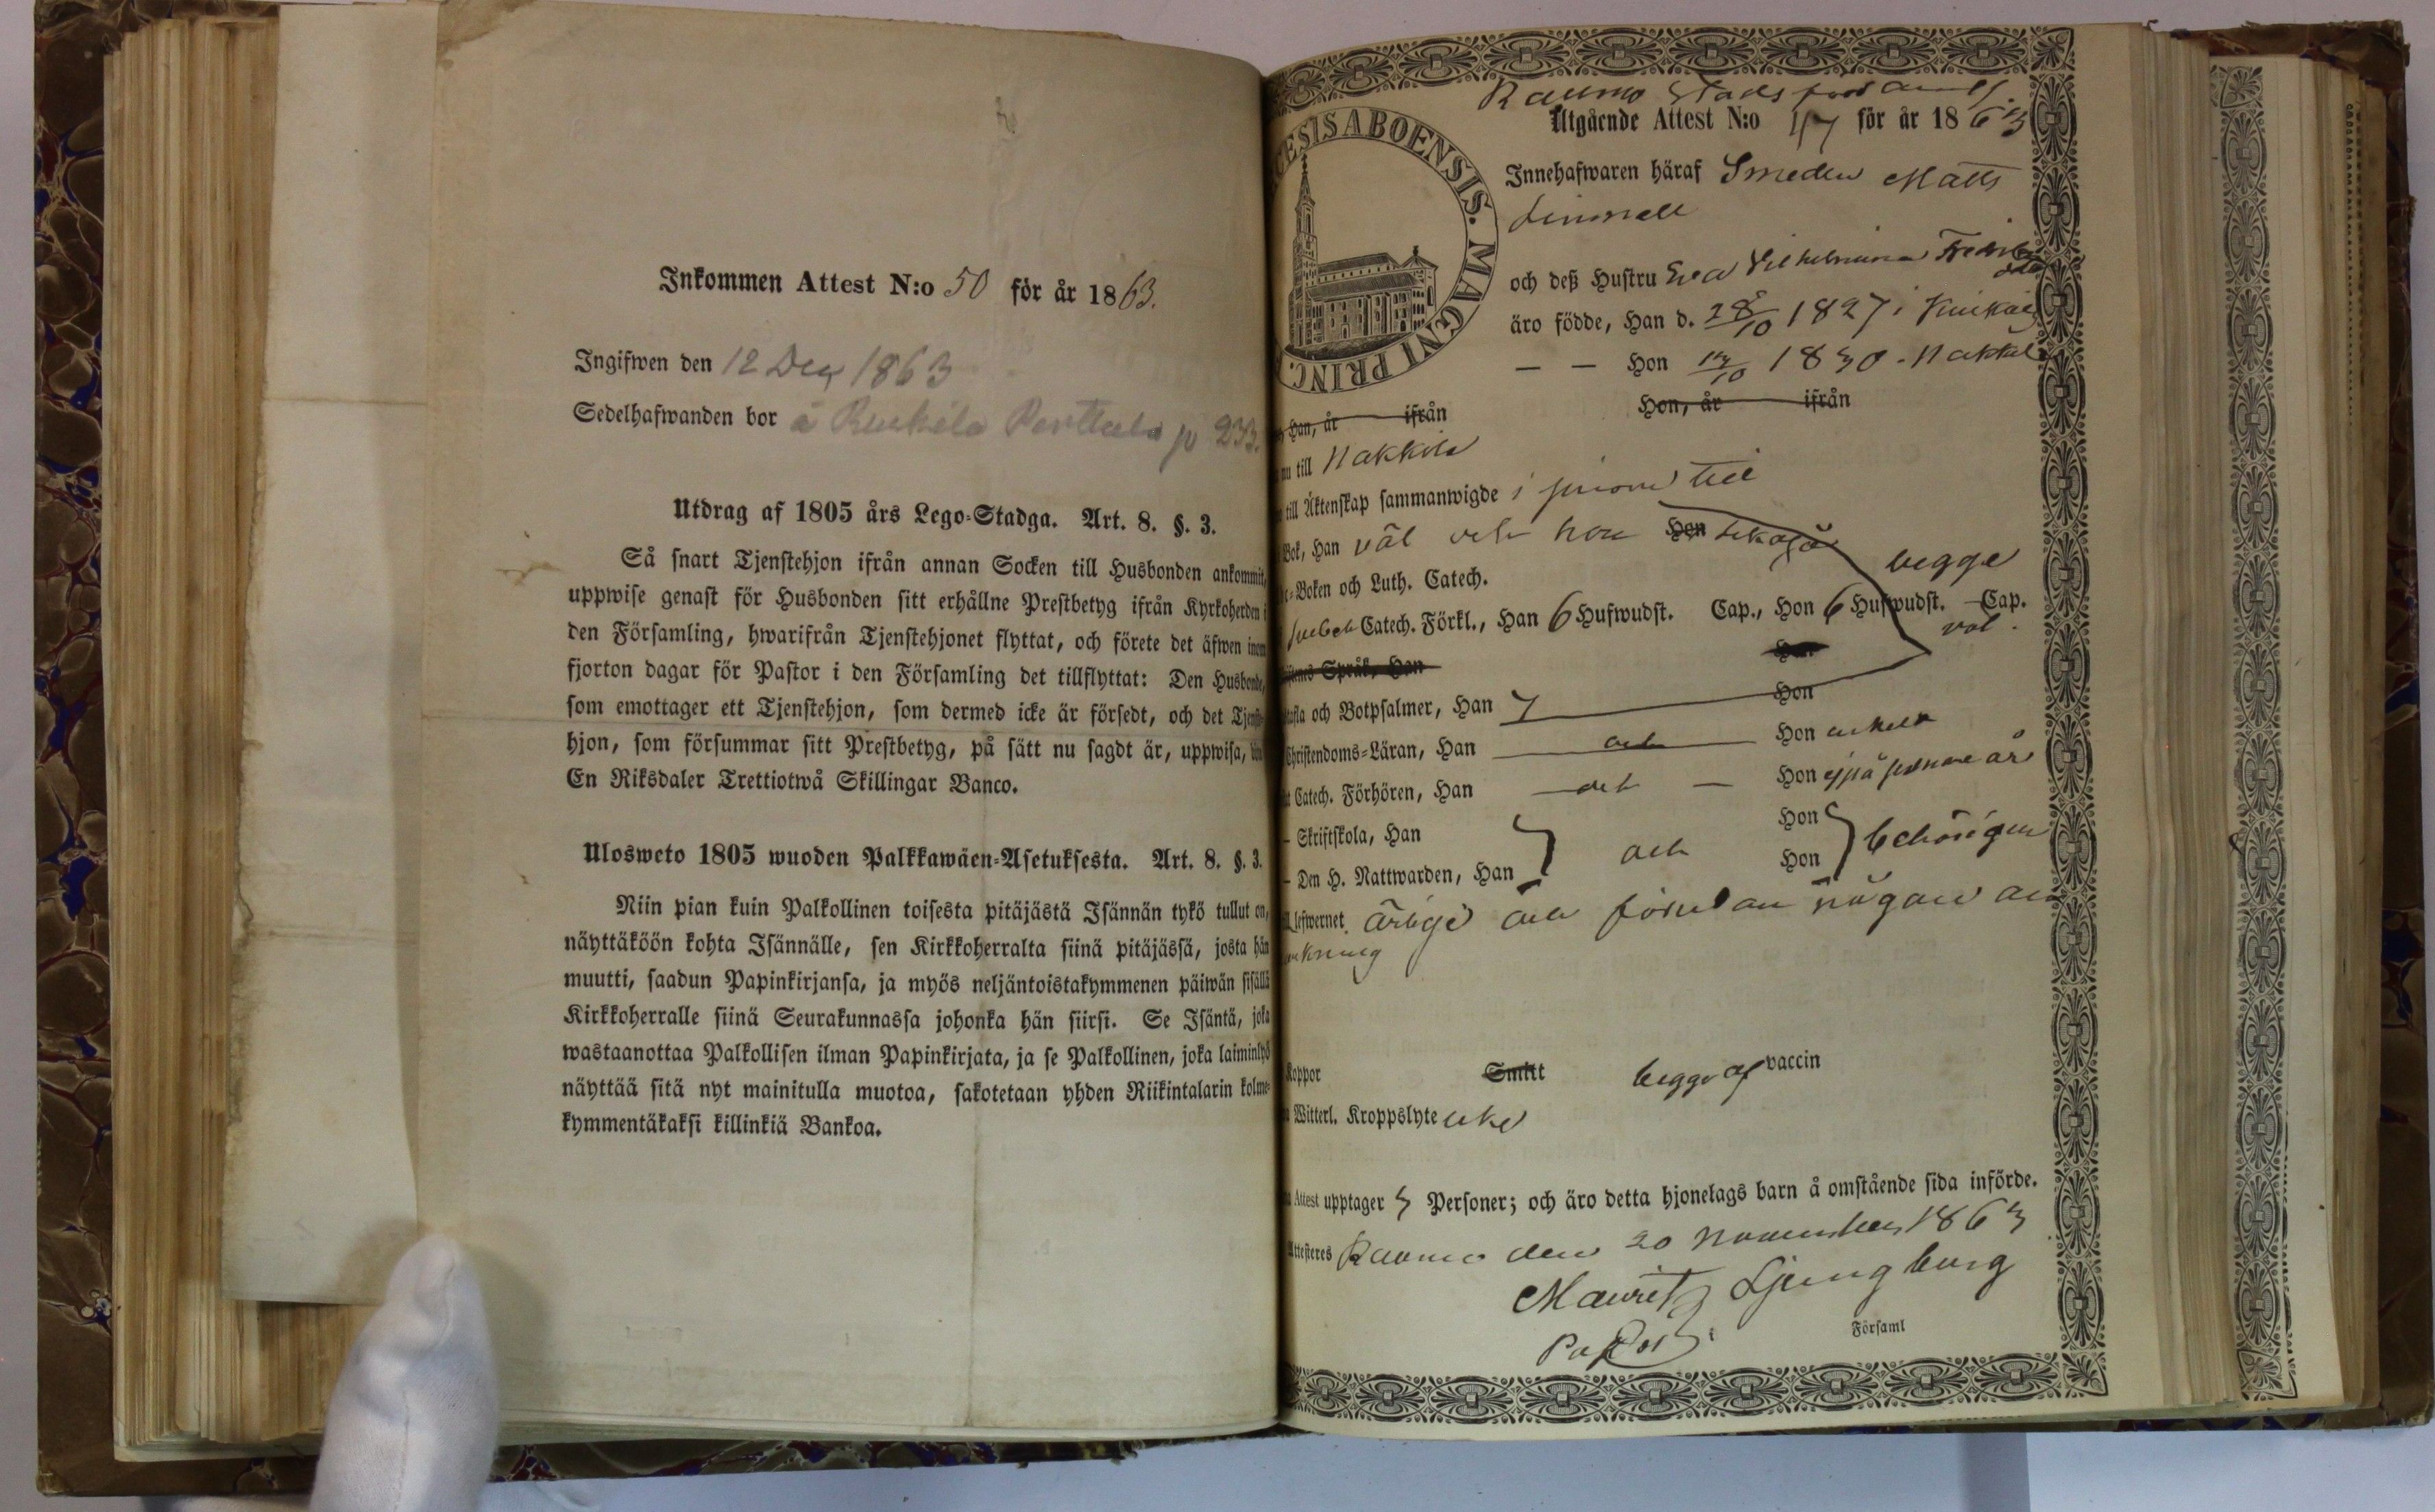 Inkommen Attest N:o 50 för år 1863.
Ingifwen den 12 Dec 1863
Sedelhafwanden bor å Penttala p 233.
Utdrag af 1805 års Lego-Stadga. Art. 8. §. 3.
Så snart Tjenstehjon ifrån annan Socken till Husbonden ankommit,
uppwise genast för Husbonden sitt erhållne Prestbetyg ifrån Kyrkoherden i
den Församling, hwarifrån Tjenstehjonet flyttat, och förete det äfwen inom
fjorton dagar för Pastor i den Församling det tillflyttat: Den Husbonde,
som emottager ett Tjenstehjon, som dermed icke är försedt, och det Tjenste-
hjon, som försummar sitt Prestbetyg, på sätt nu sagdt är, uppwisa,
En Riksdaler Trettiotwå Skillingar Banco.
Ulosweto 1805 wuoden Palkkawäen-Asetuksesta. Art. 8. §. 3.
Niin pian kuin Palkollinen toisesta pitäjästä Isännän tykö tullut on,
näyttäköön kohta Isännälle, sen Kirkkoherralta siinä pitäjässä, josta hän
muutti, saadun Papinkirjansa, ja myös neljäntoistakymmenen päiwän sisällä
Kirkkoherralle siinä Seurakunnassa johonka hän siirsi. Se Isäntä, joka
wastaanottaa Palkollisen ilman Papinkirjata, ja se Palkollinen, joka laiminlyö
näyttää sitä nyt mainitulla muotoa, sakotetaan yhden Riikintalarin kolme-
kymmentäkaksi killinkiä Bankoa.
Raumo Stads
Utgående Attest N:o för år 1863
CESIS ABOENSIS. MAGNI PRINC.
Innehafwaren häraf Smeden Matts
Linnvall
och deß Hustru Eva Vilhelmina
äro födde, Han d. 28/10 1827 i
— — Hon 1830
Han, år ifrån Hon, år ifrån
nu till Nakkila
till Äktenskap sammanwigde
Bok, Han väl och hon Hon
begge
Boken och Luth. Catech.
Catech. Förkl., Han 6 Hufwudst. Cap., Hon 6 Hufwudst. Cap.
väl.
Språk, Han
och Botpsalmer, Han Hon
Christendoms-Läran, Han och Hon
Catech. Förhören, Han och — Hon
– Skriftskola, Han Hon
– Den H. Nattwarden, Han och Hon behörigen
lefwernet ärlige och
Koppor Smitt begge af vaccin
Witterl. Kroppslyte icke
Attest upptager 3 Personer; och äro detta hjonelags barn å omstående sida införde.
Attesteres Raumo den 20 November 1863
Mauritz Ljungberg
Pastor i Församl